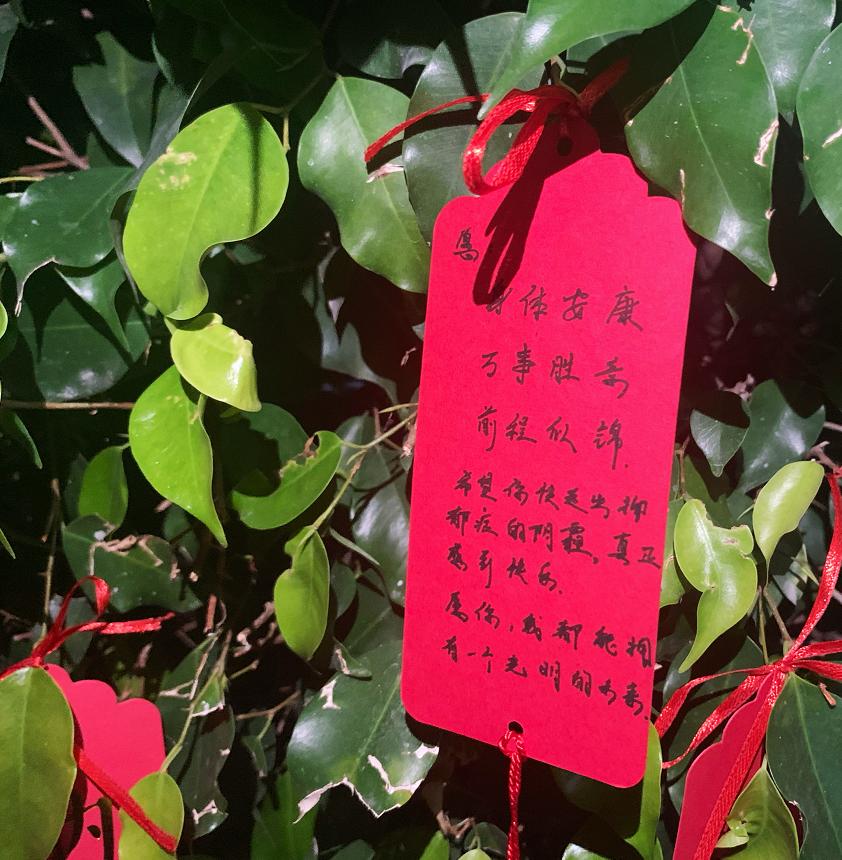 愿
身体安康
万事胜意
前程似锦.
希望你快走出抑
郁症的阴霾,真正
感到快乐.
愿你,我都能拥
有一个光明的未来.